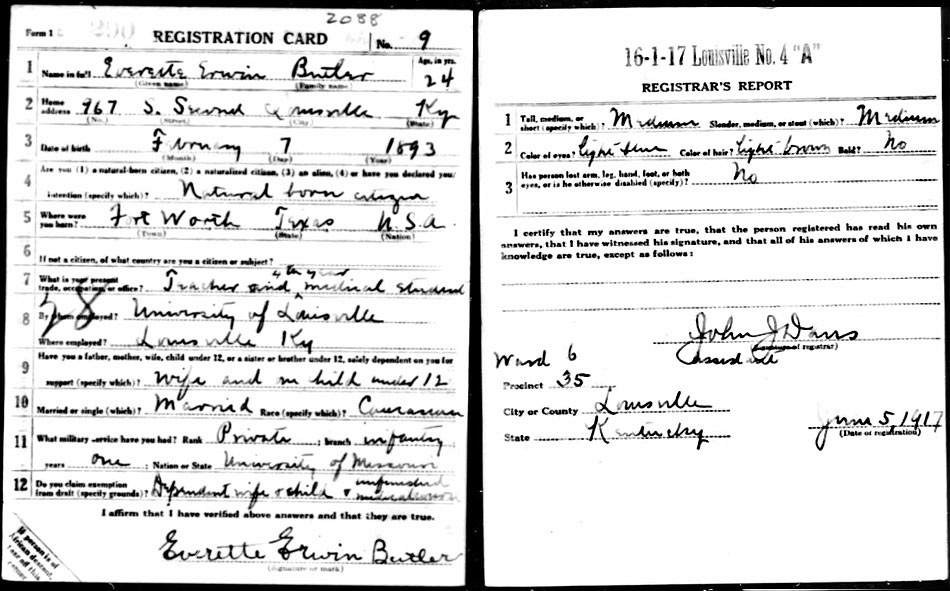 2088
Form 1 290 REGISTRATION CARD No. 9
1 Name in full Everette Erwin Butler Age, in yrs. 24
(Given name) (Family name)
2 Home address 967 S. Second Louisville Ky
(No.) (Street) (City) (State)
3 Date of birth February 7 1893
(Month) (Day) (Year)
4 Are you (1) a natural-born citizen, (2) a naturalized citizen, (3) an alien, (4) or have you declared your
intention (specify which)? Natural born citizen
5 Where were you born? Fort Worth Texas U.S.A.
(Town) (State) (Nation)
6 If not a citizen, of what country are you a citizen or subject?
7 What is your present trade, occupation, or office? Teacher and 4th year medical student
28
8 By whom employed? University of Louisville
Where employed? Louisville Ky
9 Have you a father, mother, wife, child under 12, or a sister or brother under 12, solely dependent on you for
support (specify which)? Wife and one child under 12
10 Married or single (which)? Married Race (specify which)? Caucasian
11 What military service have you had? Rank Private ; branch infantry
years one ; Nation or State University of Missouri
12 Do you claim exemption from draft (specify grounds)? Dependent wife & child & unfinished medical
I affirm that I have verified above answers and that they are true.
Everette Erwin Butler
(Signature or mark)
If person is of
African descent,
tear off this
corner
16-1-17 Louisville No. 4 "A"
REGISTRAR'S REPORT
1 Tall, medium, or short (specify which)? Medium Slender, medium, or stout (which)? Medium
2 Color of eyes? Light blue Color of hair? Light brown Bald? No
3 Has person lost arm, leg, hand, foot, or both
eyes, or is he otherwise disabled (specify)? No
I certify that my answers are true, that the person registered has read his own
answers, that I have witnessed his signature, and that all of his answers of which I have
knowledge are true, except as follows:
John J Davis
(Signature of registrar)
Ward 6
Precinct 35
City or County Louisville
State Kentucky June 5, 1917
(Date of registration)